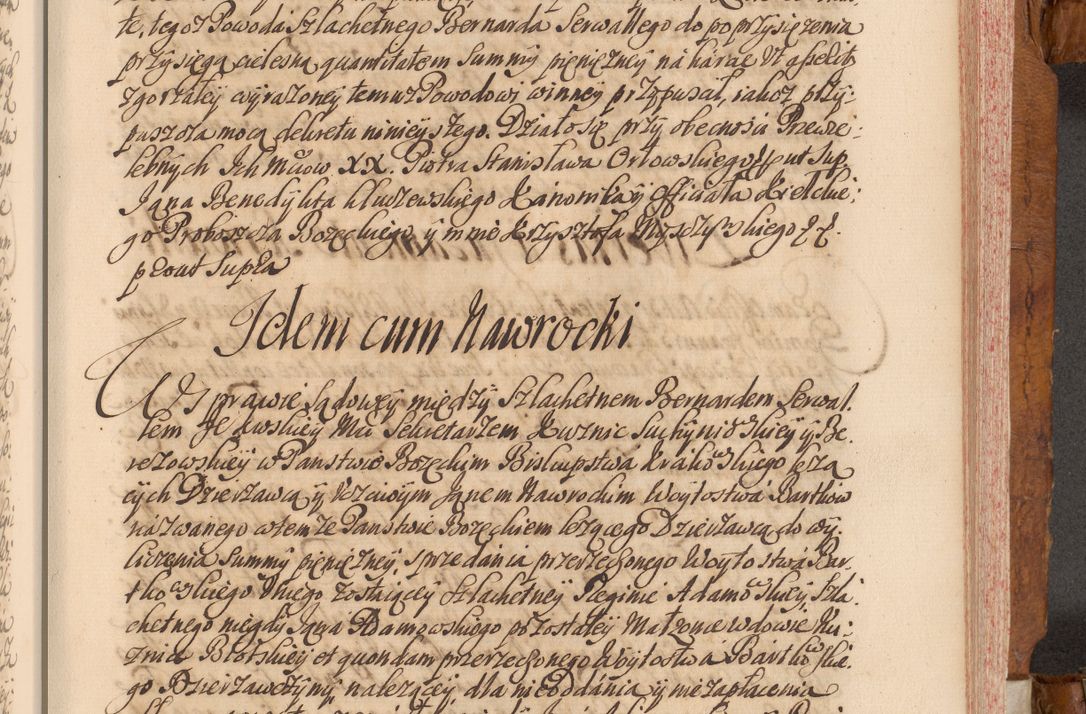 te, tegoż Powoda Szlachetnego Bernarda Serwallego do poprzysiężenia
przysięgą cielesną quantitatem Summy pieniężney na karcie
zgorzałey wyrażoney temuż Powodowi winney przypuscił, iakoż przy:
puszcza mocą dekretu ninieyszego. Działo się przy obecności Przewie:
lebnych Ich Mciow XX. Piotra Stanisława Orłowskiego ut sup
Jana Benedykta Kluczewskiego Kanonika y Officiała Kielckie:
go Proboszcza Bozeckiego, y mnie Krzysztofa
ut Supra
Idem cum Nawrocki
W Sprawie sądowey między Szlachetnem Bernardem Serwal
lem Je Kwskiey Mci Sekretarzem Kuznic Suchyniowskiey y Be
rezowskiey w Panstwie Bozeckim Biskupstwa Krakowskiego leżą
cych Dzierżawcą y Uczciwym Janem Nawrockim Woytostwa Bartkow
nazwanego w temże Panstwie Bozeckiem leżącego Dzierżawcą do wy
liczenia Summy pieniężney, sprzedania przerzeczonego Woytostwa Bar
tkowskiego Niego zostaiącey Szlachetney Reginie Adamowskiey Szla
chetnego niegdy Jana Adamowskiego pozostałey Małżonce wdowie Ku:
znice Błotskiey et quondam przerzeczonego Woytostwa Bartkowskie:
go Dzierzawczyny należącey, dla nieoddania y niezapłacenia